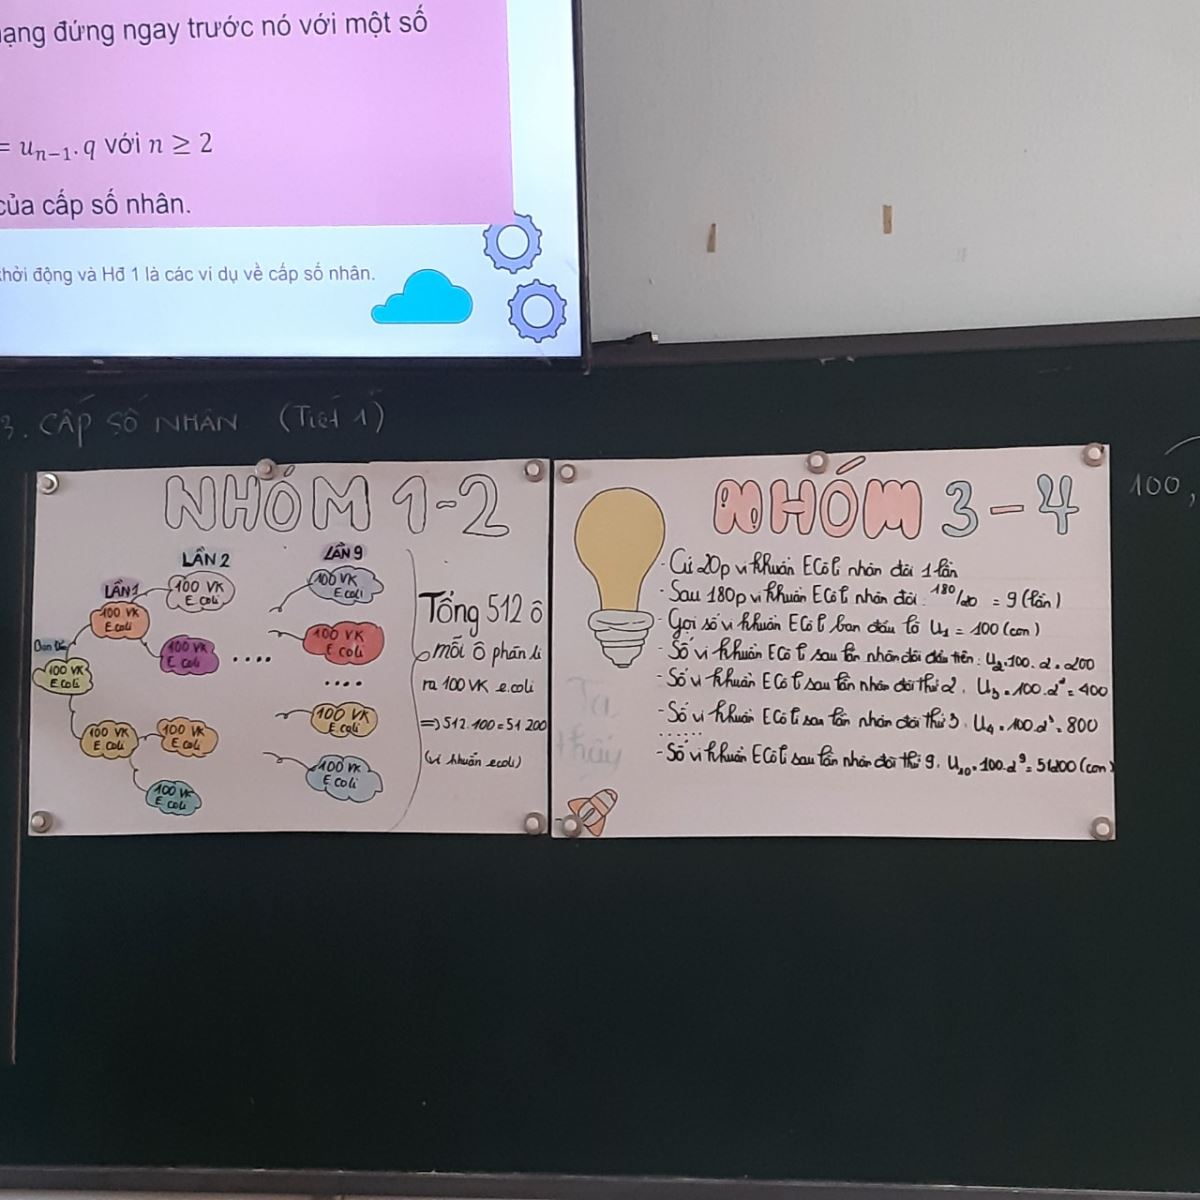 ạng đứng ngay trước nó với một số
= uₙ₋₁. q với n ≥ 2
của cấp số nhân.
khởi động và Hđ 1 là các ví dụ về cấp số nhân.
3. CẤP SỐ NHÂN (Tiết 1)
100,
NHÓM 1-2
LẦN 1
LẦN 2
LẦN 9
100 VK E.Coli
100 VK E.Coli
100 VK E.Coli
100 VK E.Coli
....
100 VK E.Coli
100 VK E.Coli
....
100 VK E.Coli
100 VK E.Coli
100 VK E.Coli
100 VK E.Coli
100 VK E.Coli
Tổng 512 ô
mỗi ô phân li
ra 100 VK e.coli
=> 512.100 = 51 200
(vi khuẩn ecoli)
NHÓM 3-4
- Cứ 20p vi khuẩn ECôli nhân đôi 1 lần
- Sau 180p vi khuẩn ECôli nhân đôi: 180/20 = 9 (lần)
- Gọi số vi khuẩn ECôli ban đầu là U₁ = 100 (con)
- Số vi khuẩn ECôli sau lần nhân đôi đầu tiên: U₂=100.2=200
- Số vi khuẩn ECôli sau lần nhân đôi thứ 2. U₃=100.2²=400
- Số vi khuẩn ECôli sau lần nhân đôi thứ 3. U₄=100.2³=800
......
- Số vi khuẩn ECôli sau lần nhân đôi thứ 9. U₁₀=100.2⁹=51200 (con)